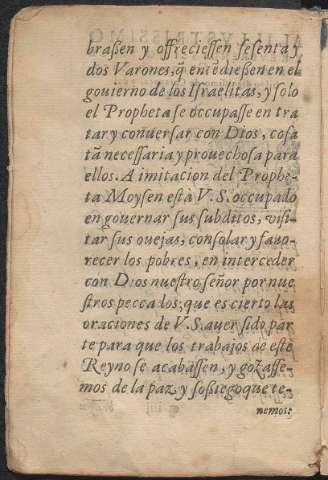 braßen y offrecieſſen ſeſenta y
dos Varones, q̃ entẽdießen en el
gouierno de los Iſraelitas, y ſolo
el Propheta ſe occupaſſe en tra
tar y conuerſar con Dios, coſa
tã neceſſaria y prouechoſa para
ellos. A imitacion del Prophe-
ta Moyſen està V. S. occupado
en gouernar ſus ſubditos, viſi-
tar ſus ouejas, conſolar y fauo-
recer los pobres, en interceder
con Dios nueſtro ſeñor por nue
ſtros peccados; que es cierto las
oraciones de V. S. auer ſido par
te para que los trabajos de eſte
Reyno ſe acabaſſen, y gozaſſe-
mos de la paz, y ſoßiego que te-
nemos